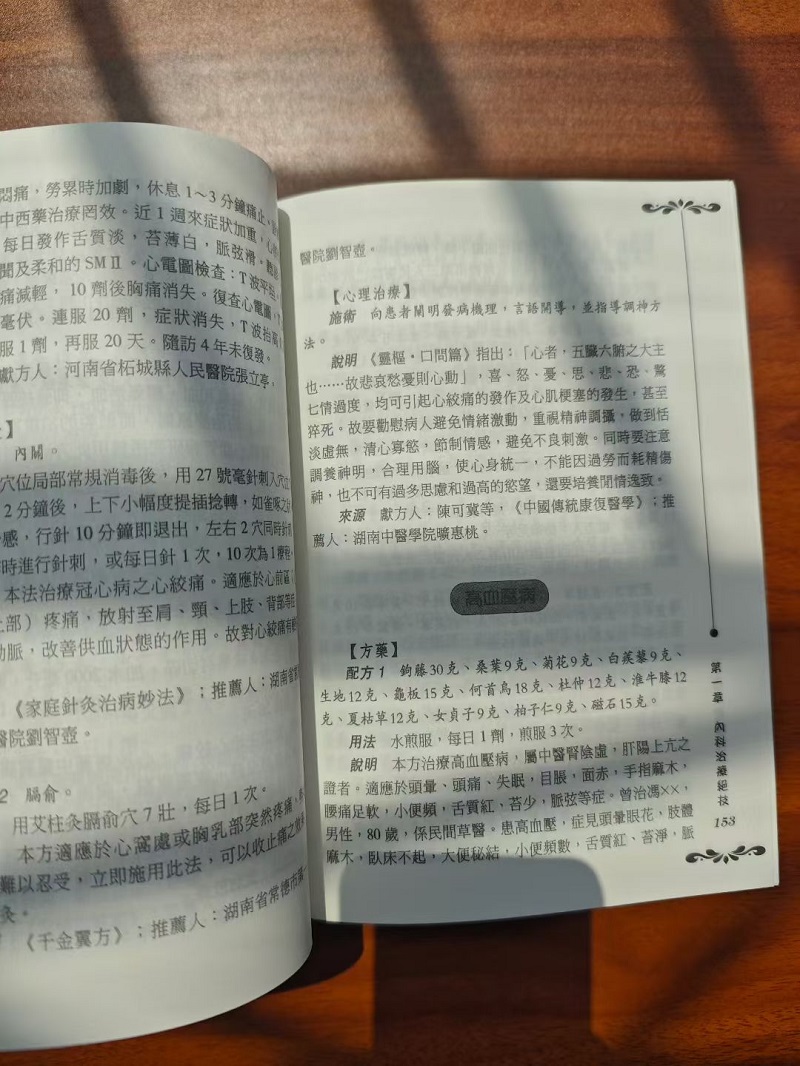 悶痛，勞累時加劇，休息 1～3 分鐘痛止。
中西藥治療罔效。近 1 週來症狀加重，心
每日發作舌質淡，苔薄白，脈弦滑。
聞及柔和的 SM II。心電圖檢查：T 波平坦，
痛減輕，10 劑後胸痛消失。復查心電圖，
毫伏。連服 20 劑，症狀消失，T 波抬高
服 1 劑，再服 20 天。隨訪 4 年未復發。
獻方人：河南省柘城縣人民醫院張立亭。
】
內關。
穴位局部常規消毒後，用 27 號毫針刺入穴位
2 分鐘後，上下小幅度提插捻轉，如雀啄之
感，行針 10 分鐘即退出，左右 2 穴同時針
時進行針刺，或每日針 1 次，10 次為 1 療程。
本法治療冠心病之心絞痛。適應於心前區
部）疼痛，放射至肩、頸、上肢、背部等
動脈，改善供血狀態的作用。故對心絞痛有
《家庭針灸治病妙法》；推薦人：湖南省
醫院劉智壺。
2 膈俞。
用艾柱灸膈俞穴 7 壯，每日 1 次。
本方適應於心窩處或胸乳部突然疼痛，
難以忍受，立即施用此法，可以收止痛之
灸。
《千金翼方》；推薦人：湖南省常德市
醫院劉智壺。
【心理治療】
施術 向患者闡明發病機理，言語開導，並指導調神方
法。
說明 《靈樞·口問篇》指出：「心者，五臟六腑之大主
也……故悲哀愁憂則心動」，喜、怒、憂、思、悲、恐、驚
七情過度，均可引起心絞痛的發作及心肌梗塞的發生，甚至
猝死。故要勸慰病人避免情緒激動，重視精神調攝，做到恬
淡虛無，清心寡慾，節制情感，避免不良刺激。同時要注意
調養神明，合理用腦，使心身統一，不能因過勞而耗精傷
神，也不可有過多思慮和過高的慾望，還要培養閒情逸致。
來源 獻方人：陳可冀等，《中國傳統康復醫學》；推
薦人：湖南中醫學院曠惠桃。
高血壓病
【方藥】
配方 1 鉤藤30克、桑葉9克、菊花9克、白蒺藜9克、
生地12克、龜板15克、何首烏18克、杜仲12克、淮牛膝12
克、夏枯草12克、女貞子9克、柏子仁9克、磁石15克。
用法 水煎服，每日 1 劑，煎服 3 次。
說明 本方治療高血壓病，屬中醫腎陰虛，肝陽上亢之
證者。適應於頭暈、頭痛、失眠，目脹，面赤，手指麻木，
腰痛足軟，小便頻，舌質紅，苔少，脈弦等症。曾治馮××，
男性，80 歲，係民間草醫。患高血壓，症見頭暈眼花，肢體
麻木，臥床不起，大便秘結，小便頻數，舌質紅、苔淨，脈
第一章 內科治療絕技
153